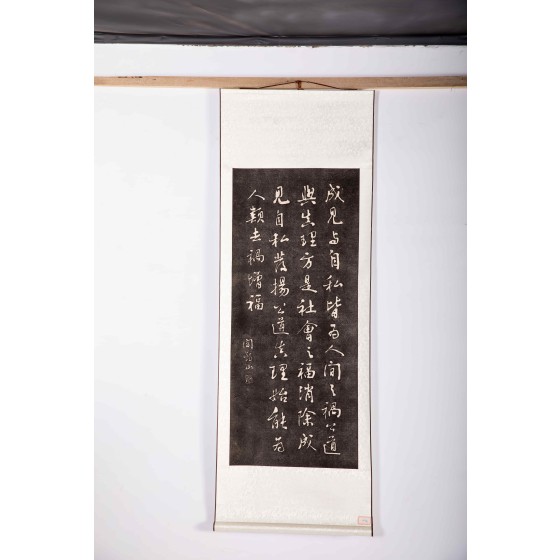 成見與自私皆為人間之禍公道
與真理方是社會之福消除成
見自私荐揚公道真理始能為
人類去禍增福
閻錫山